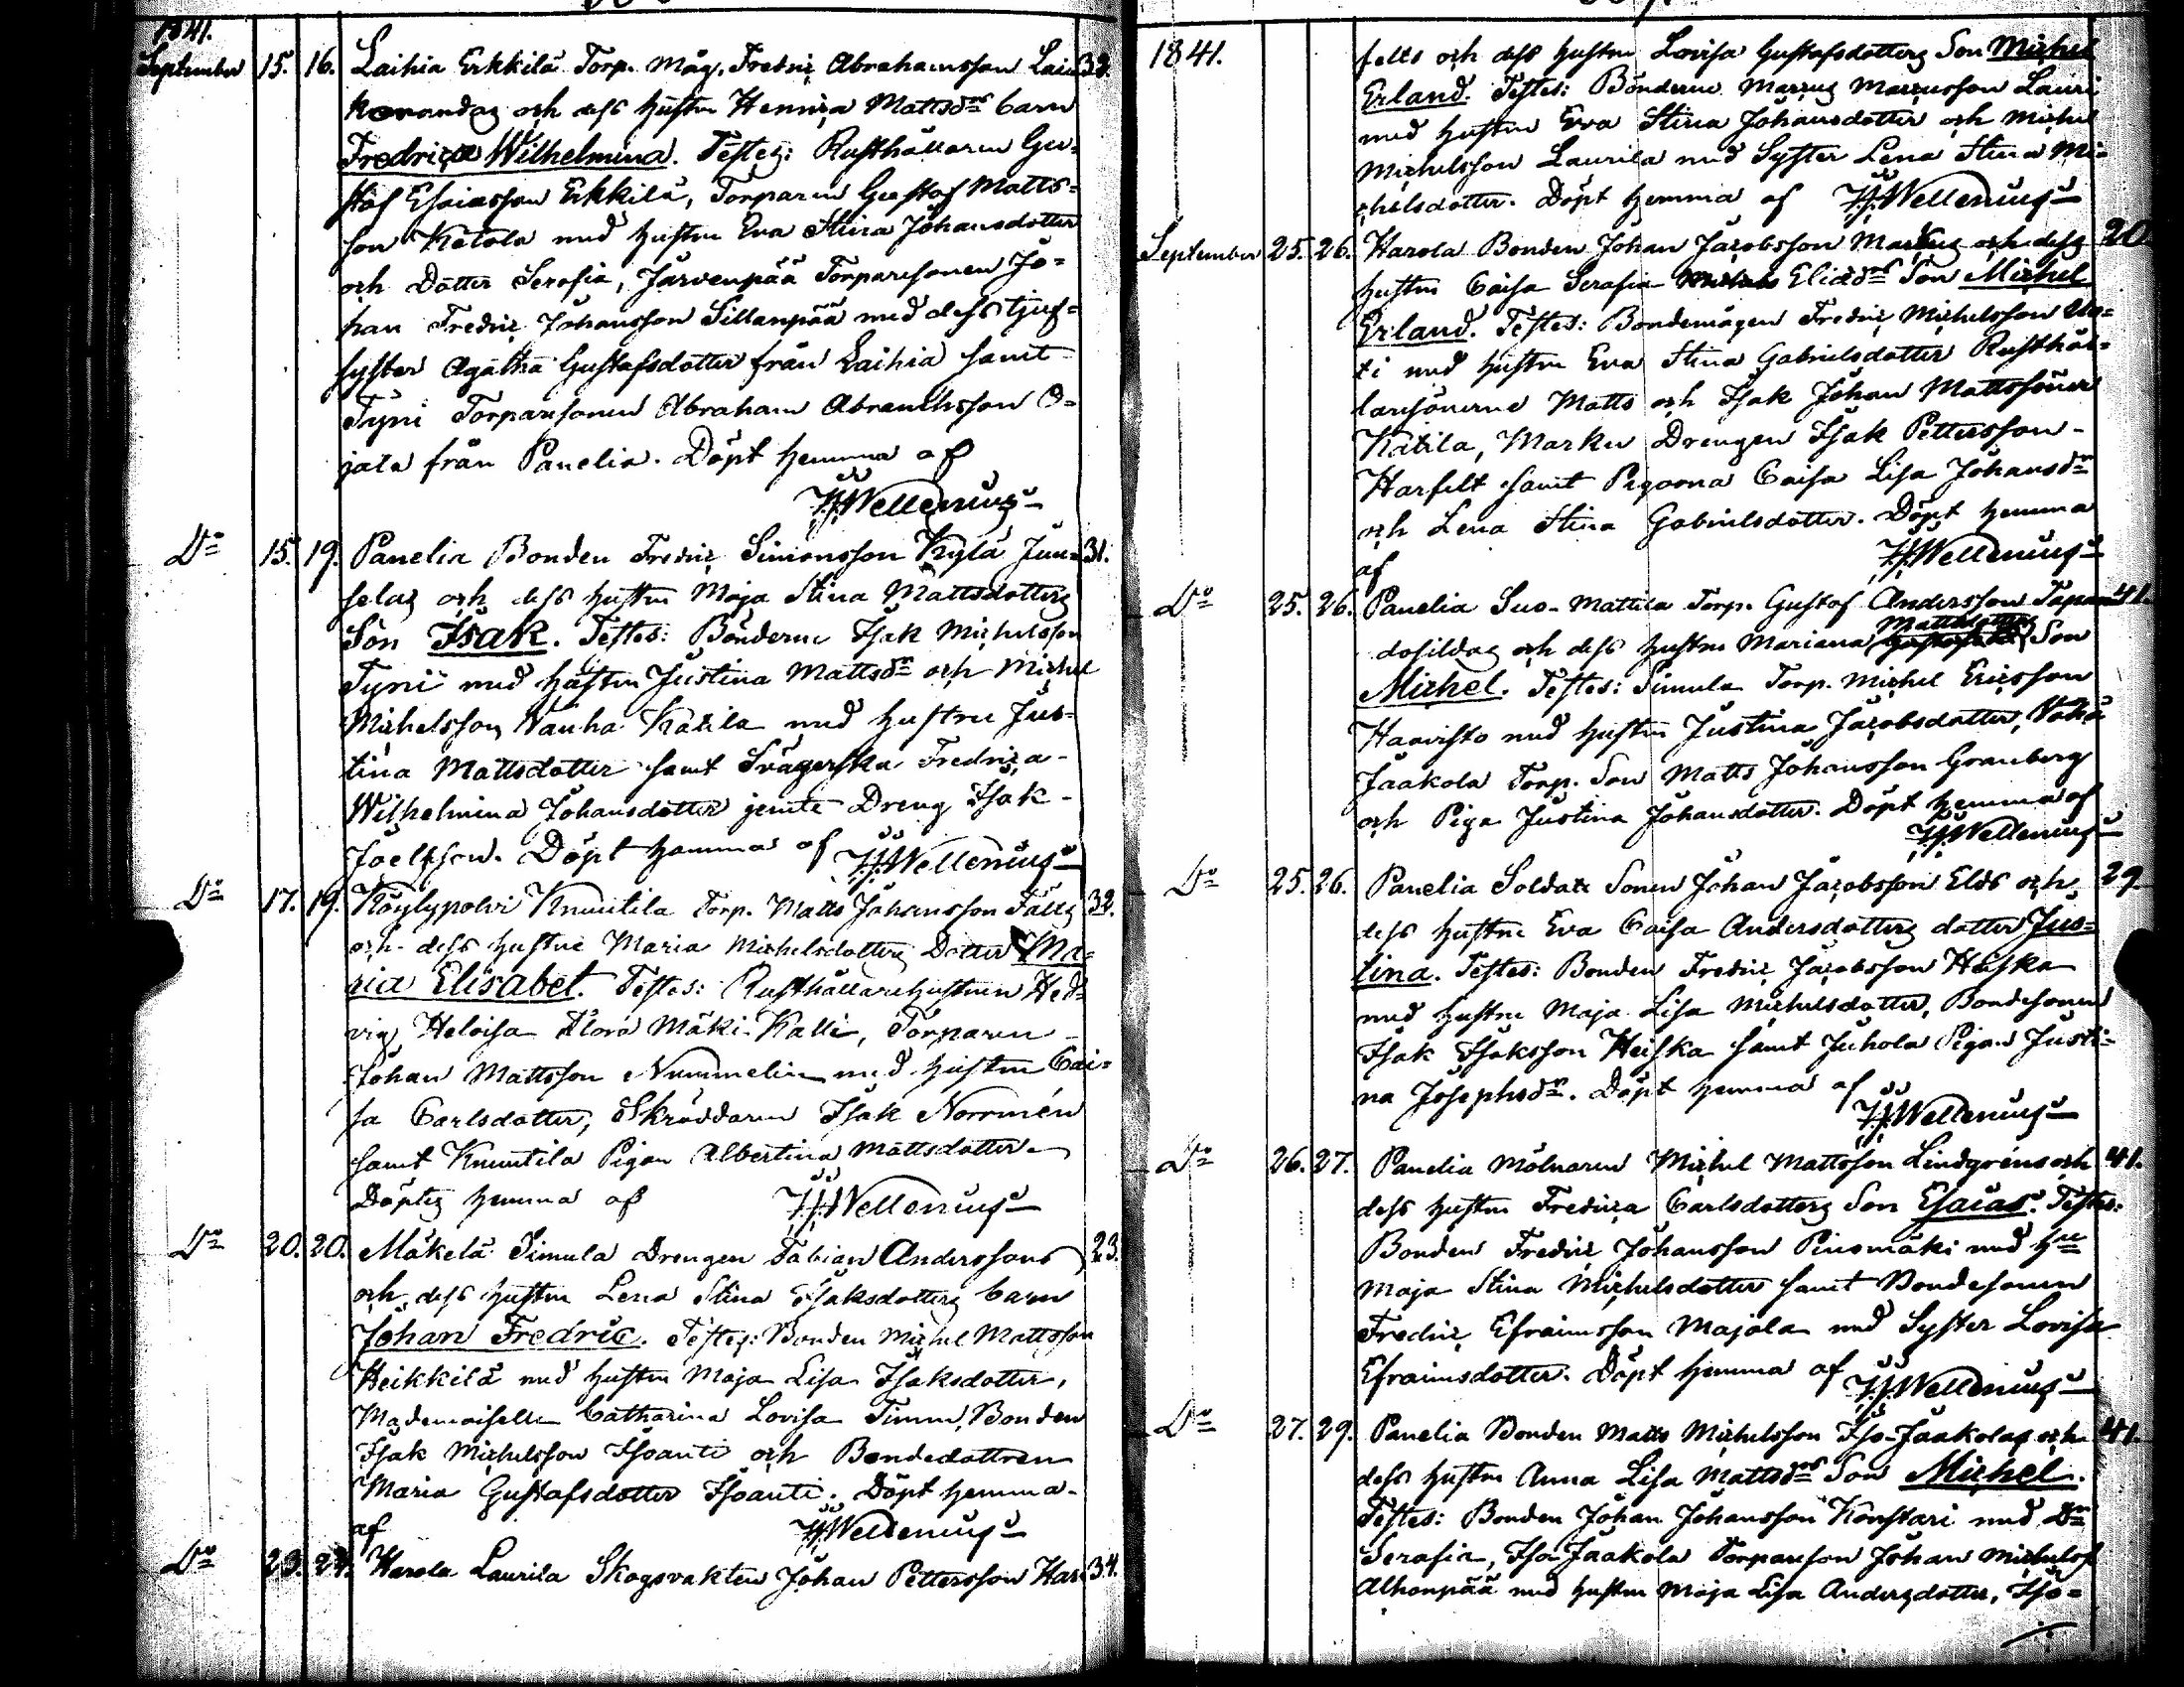 1841.
September 15. 16. Laihia Erkkilä Torp. Måg. Fredric Abrahamsson Lai- 38.
korandas och dess hustru Henrica Mattsdrs barn
Fredrica Wilhelmina. Testes: Rusthållaren Gu-
staf Esaiasson Erkkilä, Torparen Gustaf Matts-
son Ketola med hustru Eva Stina Johansdotter
och Dotter Serafia, Järvenpää Torparesonen Jo-
han Fredric Johansson Sillanpää med dess
syster Agatha Gustafsdotter från Laihia samt
Tyni Torparesonen Abraham Abramsson O-
jala från Panelia. Döpt hemma af
Wellenius
Do 15. 19. Panelia Bonden Fredric Simonsson Kylä Jun- 31.
selas och dess hustru Maja Stina Mattsdotters
Son Isak. Testes: Bönderne Isak Michelsson
Tyni med hustru Justina Mattsdr och Michel
Michelsson Vanha Katila med hustru Jus-
tina Mattsdotter samt Svägerska Fredrica
Wilhelmina Johansdotter jemte Dreng Isak
Joelsson. Döpt hemma af Wellenius
Do 17. 19. Köylypolvi Knuutila Torp. Matts Johansson Fälts 32.
och dess hustru Maria Michelsdotters Dotter Ma-
ria Elisabet. Testes: Rusthållarehustrun Hed-
vig Heloisa Flora Mäki-Kalli, Torparen
Johan Mattsson Nummelin med hustru Cai-
sa Carlsdotter, Skräddaren Isak Norrmén
samt Knuutila Pigan Albertina Mattsdotter.
Döpts hemma af Wellenius
Do 20. 20. Mäkelä Simula Drengen Fabian Anderssons 23.
och dess hustru Lena Stina Isaksdotters barn
Johan Fredric. Testes: Bonden Michel Mattsson
Heikkilä med hustru Maja Lisa Isaksdotter,
Mademoiselle Catharina Lovisa Timm, Bonden
Isak Michelsson Isoanti och Bondedottren
Maria Gustafsdotter Isoanti. Döpt hemma
af Wellenius
Do 23. 24. Harola Laurila Skogsvakten Johan Pettersson Har- 34.
1841.
felts och dess hustru Lovisa Gustafsdotters Son Michel
Erland. Testes: Bönderne Marcus Marcusson Lauri
med hustru Eva Stina Johansdotter och Michel
Michelsson Laurila med Syster Lena Stina Mi-
chelsdotter. Döpt hemma af Wellenius
September 25. 26. Harola Bonden Johan Jacobsson Markus och dess 20.
hustru Caisa Serafia Eliædrs Son Michel
Erland. Testes: Bondemågen Fredric Michelsson An-
ti med hustru Eva Stina Gabrielsdotter Rusthål-
laresönerne Matts och Isak Johan Mattssöner
Katila, Marku Drengen Isak Pettersson
Harfelt samt Pigorna Caisa Lisa Johansdr
och Lena Stina Gabrielsdotter. Döpt hemma
af Wellenius
Do 25. 26. Panelia Suo-Mattila Torp. Gustaf Andersson Tapan- 41.
Mattsdotters
dosildas och dess hustru Mariana Son
Michel. Testes: Simula Torp. Michel Ericsson
Haavisto med hustru Justina Jacobsdotter,
Jaakola Torp. Son Matts Johansson Granberg
och Piga Justina Johansdotter. Döpt hemma af
Wellenius
Do 25. 26. Panelia Soldate Sonen Johan Jacobsson Elds och 29.
dess hustru Eva Caisa Andersdotters dotter Jus-
tina. Testes: Bonden Fredric Jacobsson Heiska
med hustru Maja Lisa Michelsdotter, Bondesonen
Isak Isaksson Heiska samt Juhola Pigan Justi-
na Josephsdr. Döpt hemma af
Wellenius
Do 26. 27. Panelia Mölnaren Michel Mattsson Lindgréns och 41.
dess hustru Fredrica Carlsdotters Son Esaias. Testes:
Bonden Fredric Johansson Piusmäki med hu
Maja Stina Michelsdotter samt Bondesonen
Fredric Efraimsson Majala med Syster Lovisa
Efraimsdotter. Döpt hemma af Wellenius
Do 27. 29. Panelia Bonden Matts Michelsson Iso-Jaakolas och 41.
dess hustru Anna Lisa Mattsdrs Son Michel.
Testes: Bonden Johan Johansson Konstari med Dr
Serafia, Iso-Jaakola Torpareson Johan Michelss
Alhonpää med hustru Maja Lisa Andersdotter, Iso-